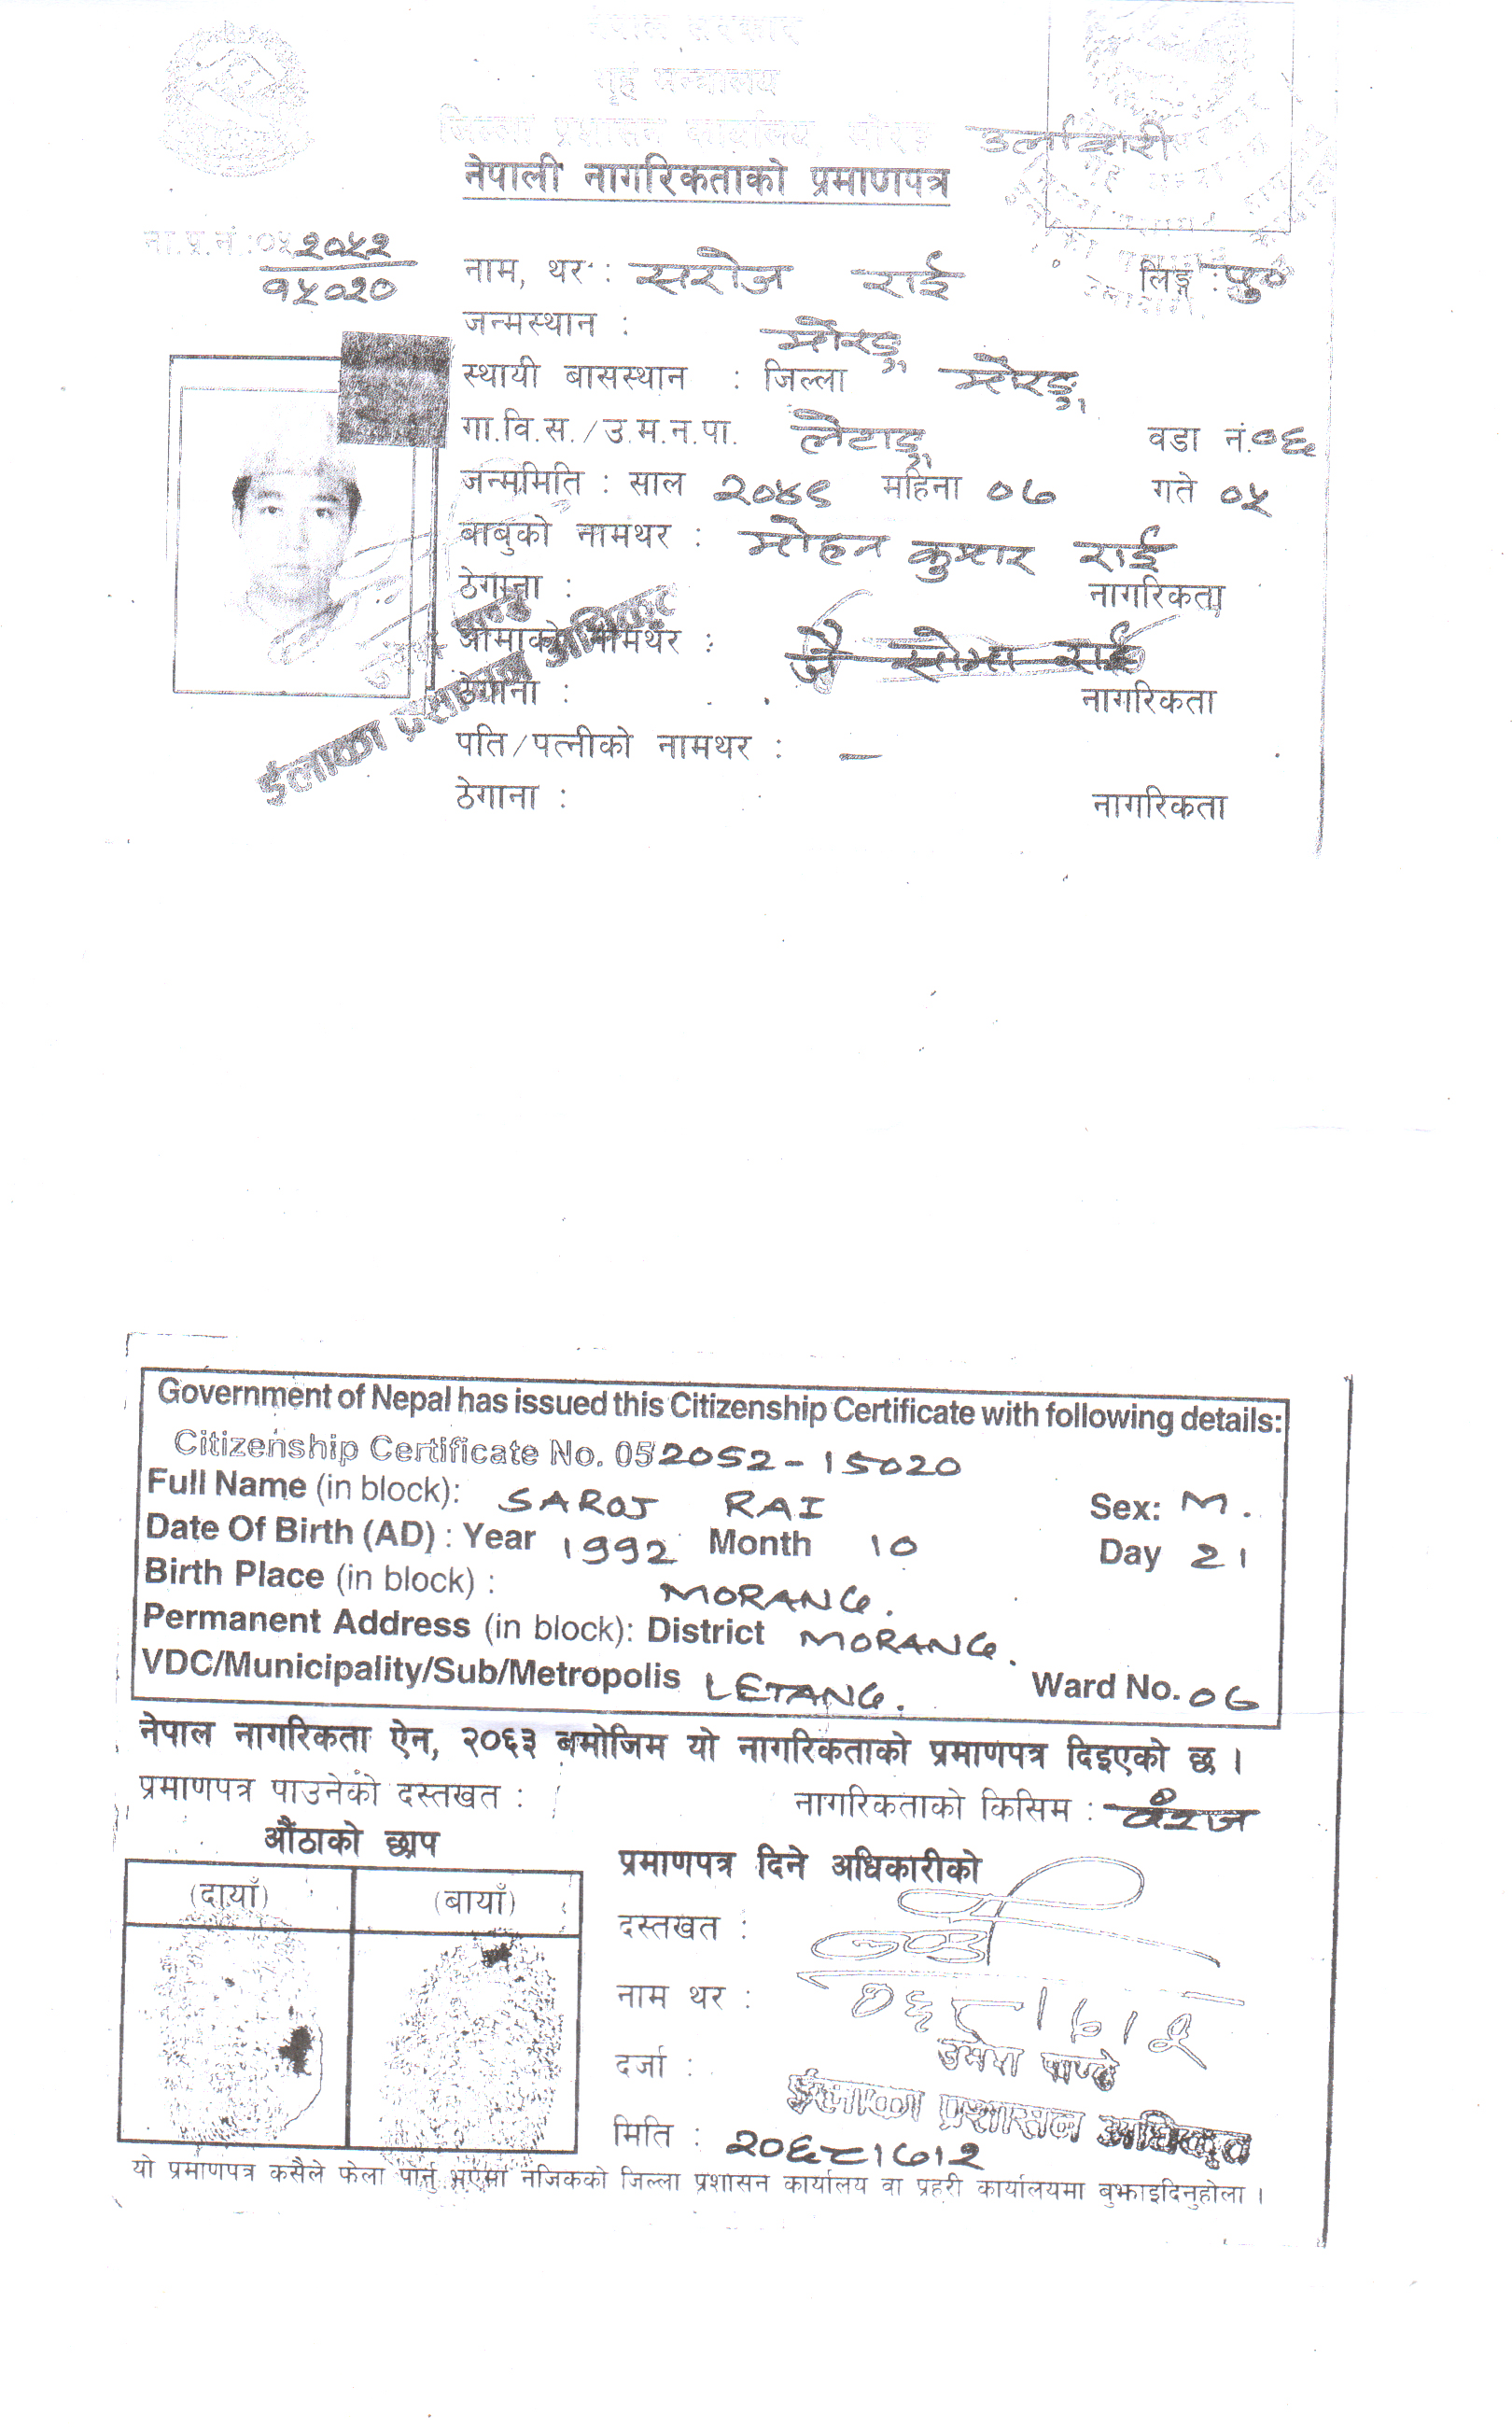 नेपाल सरकार
गृह मन्त्रालय
जिल्ला प्रशासन कार्यालय मोरङ उर्लाबारी
नेपाली नागरिकताको प्रमाणपत्र
ना.प्र.नं.:०५२०५२
१५०२०
नाम, थर : सरोज राई लिङ्ग : पुरुष
जन्मस्थान : मोरङ्ग
स्थायी बासस्थान : जिल्ला मोरङ्ग
गा.वि.स./उ.म.न.पा. लेटाङ्ग वडा नं.०६
जन्ममिति : साल २०४९ महिना ०७ गते ०५
बाबुको नामथर : मोहन कुमार राई
ठेगाना : नागरिकता
आमाको नामथर : राई
ठेगाना : नागरिकता
पति/पत्नीको नामथर : –
ठेगाना : नागरिकता
ईलाका प्रशासन अधिकृत
Government of Nepal has issued this Citizenship Certificate with following details:
Citizenship Certificate No. 052052-15020
Full Name (in block): SAROJ RAI Sex: M.
Date Of Birth (AD) : Year 1992 Month 10 Day 21
Birth Place (in block) : MORANG.
Permanent Address (in block): District MORANG.
VDC/Municipality/Sub/Metropolis LETANG. Ward No. 06
नेपाल नागरिकता ऐन, २०६३ बमोजिम यो नागरिकताको प्रमाणपत्र दिइएको छ ।
प्रमाणपत्र पाउनेको दस्तखत : नागरिकताको किसिम : वंशज
औंठाको छाप
(दायाँ) (बायाँ)
प्रमाणपत्र दिने अधिकारीको
दस्तखत :
नाम थर : ०६८।७।२
दर्जा : पाण्डे
ईलाका प्रशासन अधिकृत
मिति : २०६८।७।२
यो प्रमाणपत्र कसैले फेला पार्नु भएमा नजिकको जिल्ला प्रशासन कार्यालय वा प्रहरी कार्यालयमा बुझाइदिनुहोला ।